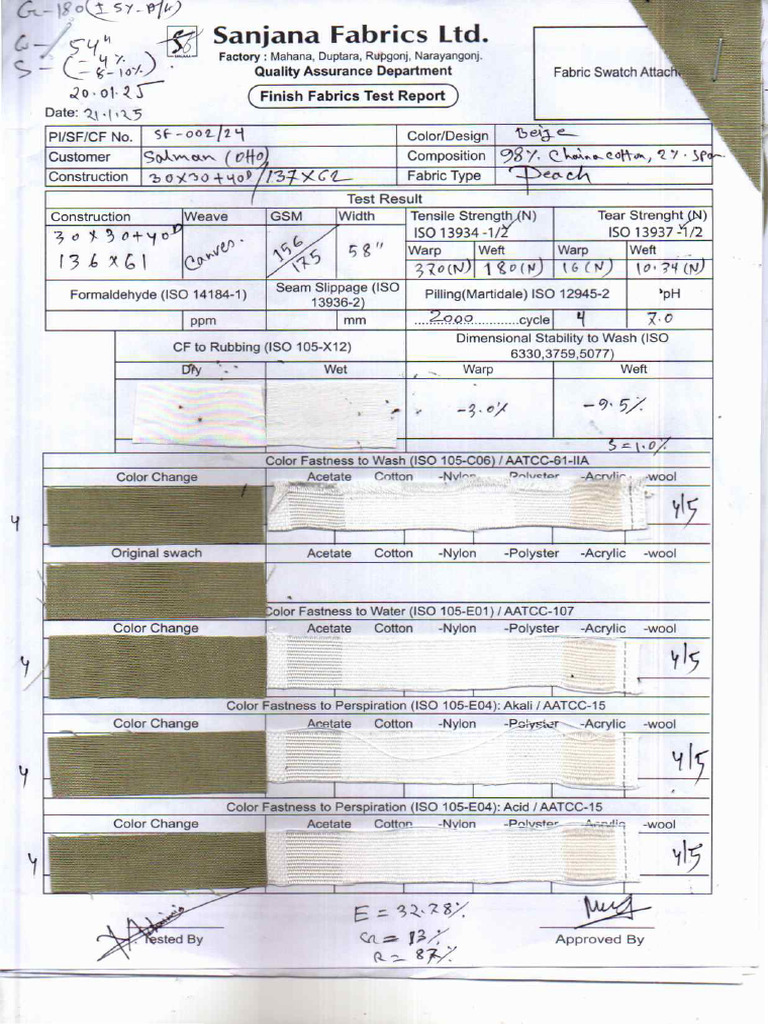 G-180 (± 5%-A/W)
G- 54"
S- (-4%
-8-10%)
20.01.25
Date: 21.1.25
Sanjana Fabrics Ltd.
Factory : Mahana, Duptara, Rupgonj, Narayangonj.
Quality Assurance Department
Finish Fabrics Test Report
Fabric Swatch Attach
PI/SF/CF No. SF-002/24 Color/Design Beize
Customer Salman (OHO) Composition 98% Chaina cotton, 2% span
Construction 30X30+40D/137X62 Fabric Type Peach
Test Result
Construction Weave GSM Width Tensile Strength (N) ISO 13934 -1/2 Tear Strenght (N) ISO 13937 -1/2
30 X 30+40D Canves. 156/175 58" Warp Weft Warp Weft
136 X 61 320(N) 180(N) 16(N) 10.34(N)
Formaldehyde (ISO 14184-1) Seam Slippage (ISO 13936-2) Pilling(Martidale) ISO 12945-2 pH
ppm mm 2000 cycle 4 7.0
CF to Rubbing (ISO 105-X12) Dimensional Stability to Wash (ISO 6330,3759,5077)
Dry Wet Warp Weft
-3.0% -9.5%
S = 1.0%
Color Fastness to Wash (ISO 105-C06) / AATCC-61-IIA
Color Change Acetate Cotton -Nylon Polyster -Acrylic -wool
4 4/5
Original swach Acetate Cotton -Nylon -Polyster -Acrylic -wool
Color Fastness to Water (ISO 105-E01) / AATCC-107
Color Change Acetate Cotton -Nylon -Polyster -Acrylic -wool
4 4/5
Color Fastness to Perspiration (ISO 105-E04): Akali / AATCC-15
Color Change Acetate Cotton -Nylon -Polyster -Acrylic -wool
4 4/5
Color Fastness to Perspiration (ISO 105-E04): Acid / AATCC-15
Color Change Acetate Cotton -Nylon -Polyster -Acrylic -wool
4 4/5
E = 32.78%
GR = 13%
R = 87%
Tested By Approved By